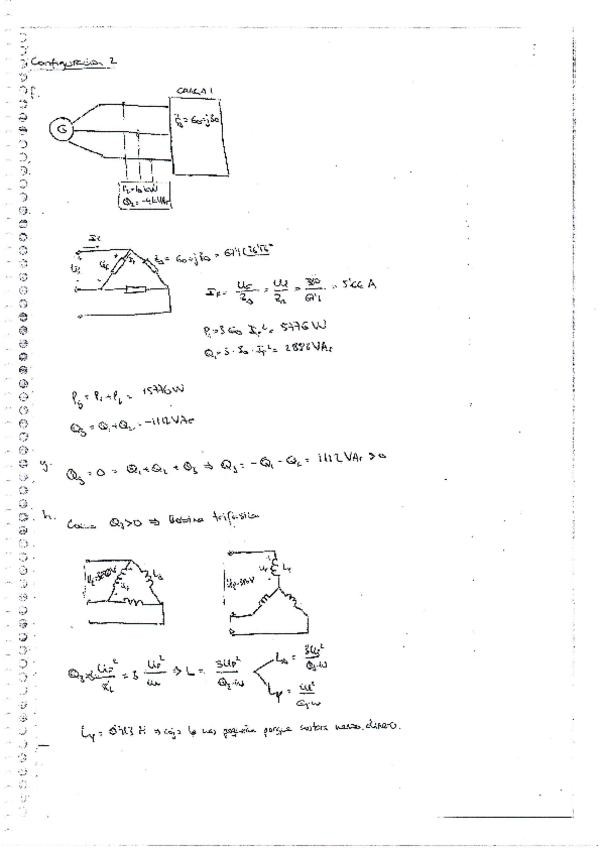 Configuración 2
f.
CARGA 1
G
Z₁ = 60+j30
P₂ = 10 kW
Q₂ = -4 kVAr
= 60+j30 = 67'1
I_F = U_F/Z₁ = U_L/Z₁ = 380/67'1 = 5'66 A
P₁ = 3·60·I_F² = 5776 W
Q₁ = 3·30·I_F² = 2888 VAr
P_g = P₁ + P₂ = 15776 W
Q_g = Q₁ + Q₂ = -1112 VAr
g.
Q_g = 0 = Q₁ + Q₂ + Q₃ ⇒ Q₃ = -Q₁ - Q₂ = 1112 VAr > 0
h.
Como Q₃ > 0 ⇒ Bobina trifásica
L_Δ
L_Y
⇒ L = 3U_F²/Q₃·ω
L_Δ = 3U_L²/Q₃·ω
L_Y = U_L²/Q₃·ω
L_Y = 0'413 H ⇒ cojo la más pequeña porque costará menos dinero.